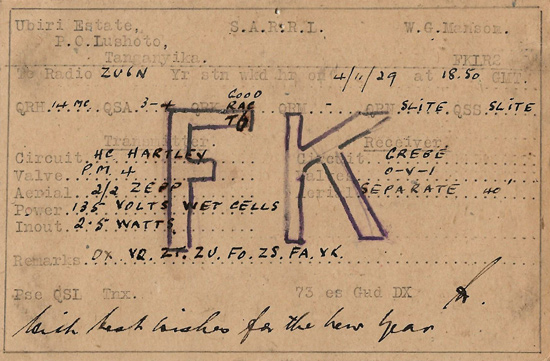 Ubiri Estate, S.A.R.R.L. W.G. Manson.
P.O. Lushoto,
Tanganyika. FK1RS
To Radio ZU6N Yr stn wkd hr on 4/11/29 at 18.50 GMT.
QRH. 14 MC. QSA. 3-4 QRK. GOOD RAC T6 QRM. - QRN SLITE QSS SLITE
FK
Transmitter Receiver
Circuit. HC HARTLEY Circuit. GREBE
Valve P.M. 4 Valves. O-V-1
Aerial 2/2 ZEPP Aerial SEPARATE 40"
Power. 135 VOLTS WET CELLS
Input. 2.5 WATTS
Remarks DX VQ. ZT. ZU. FO. ZS. FA. VK.
Pse QSL Tnx. 73 es Gud DX
With best wishes for the new year.